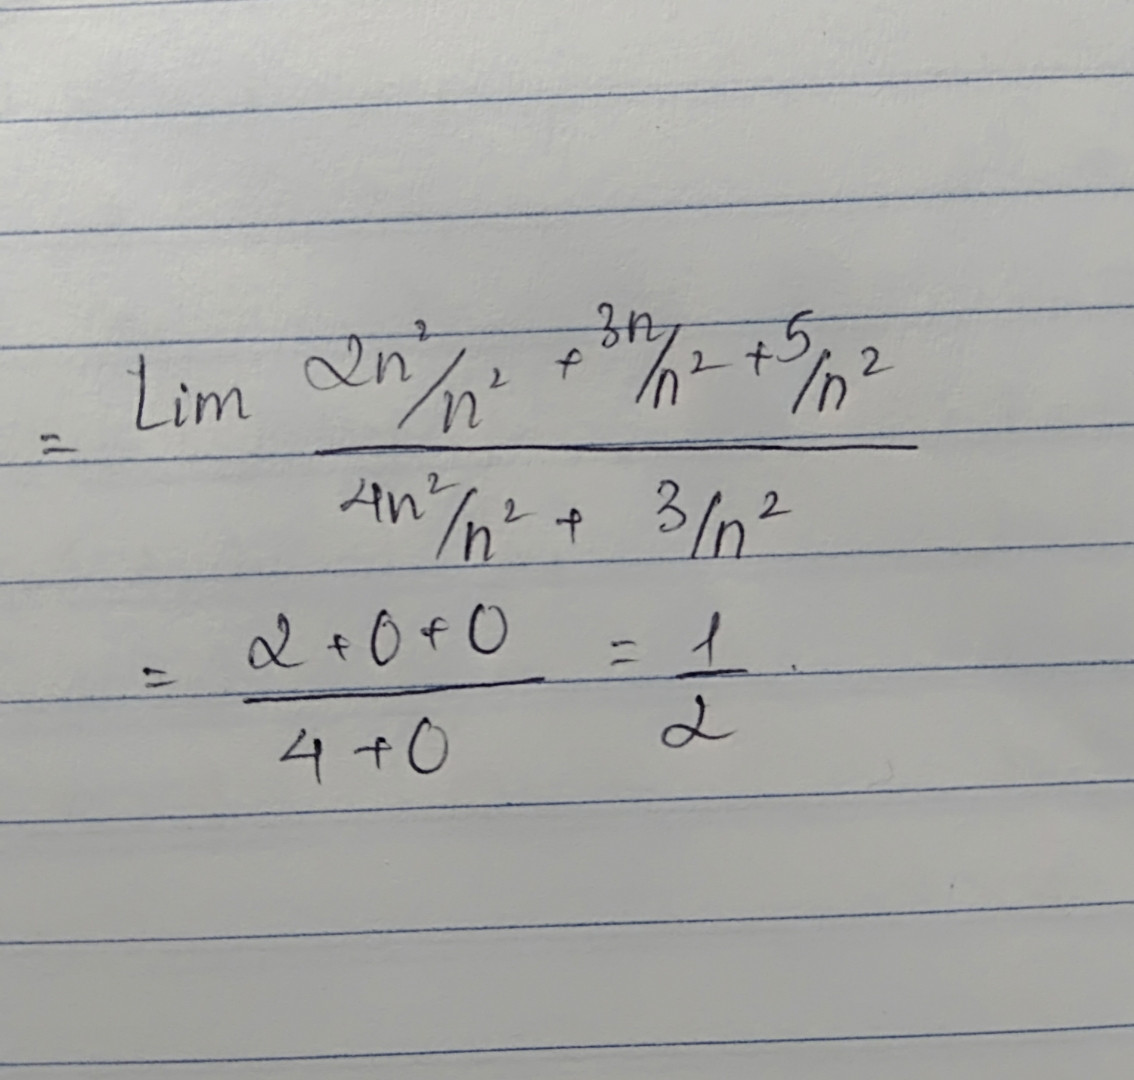 = Lim 2n²/n² + 3n/n² + 5/n²
4n²/n² + 3/n²
= 2 + 0 + 0 = 1
4 + 0 2